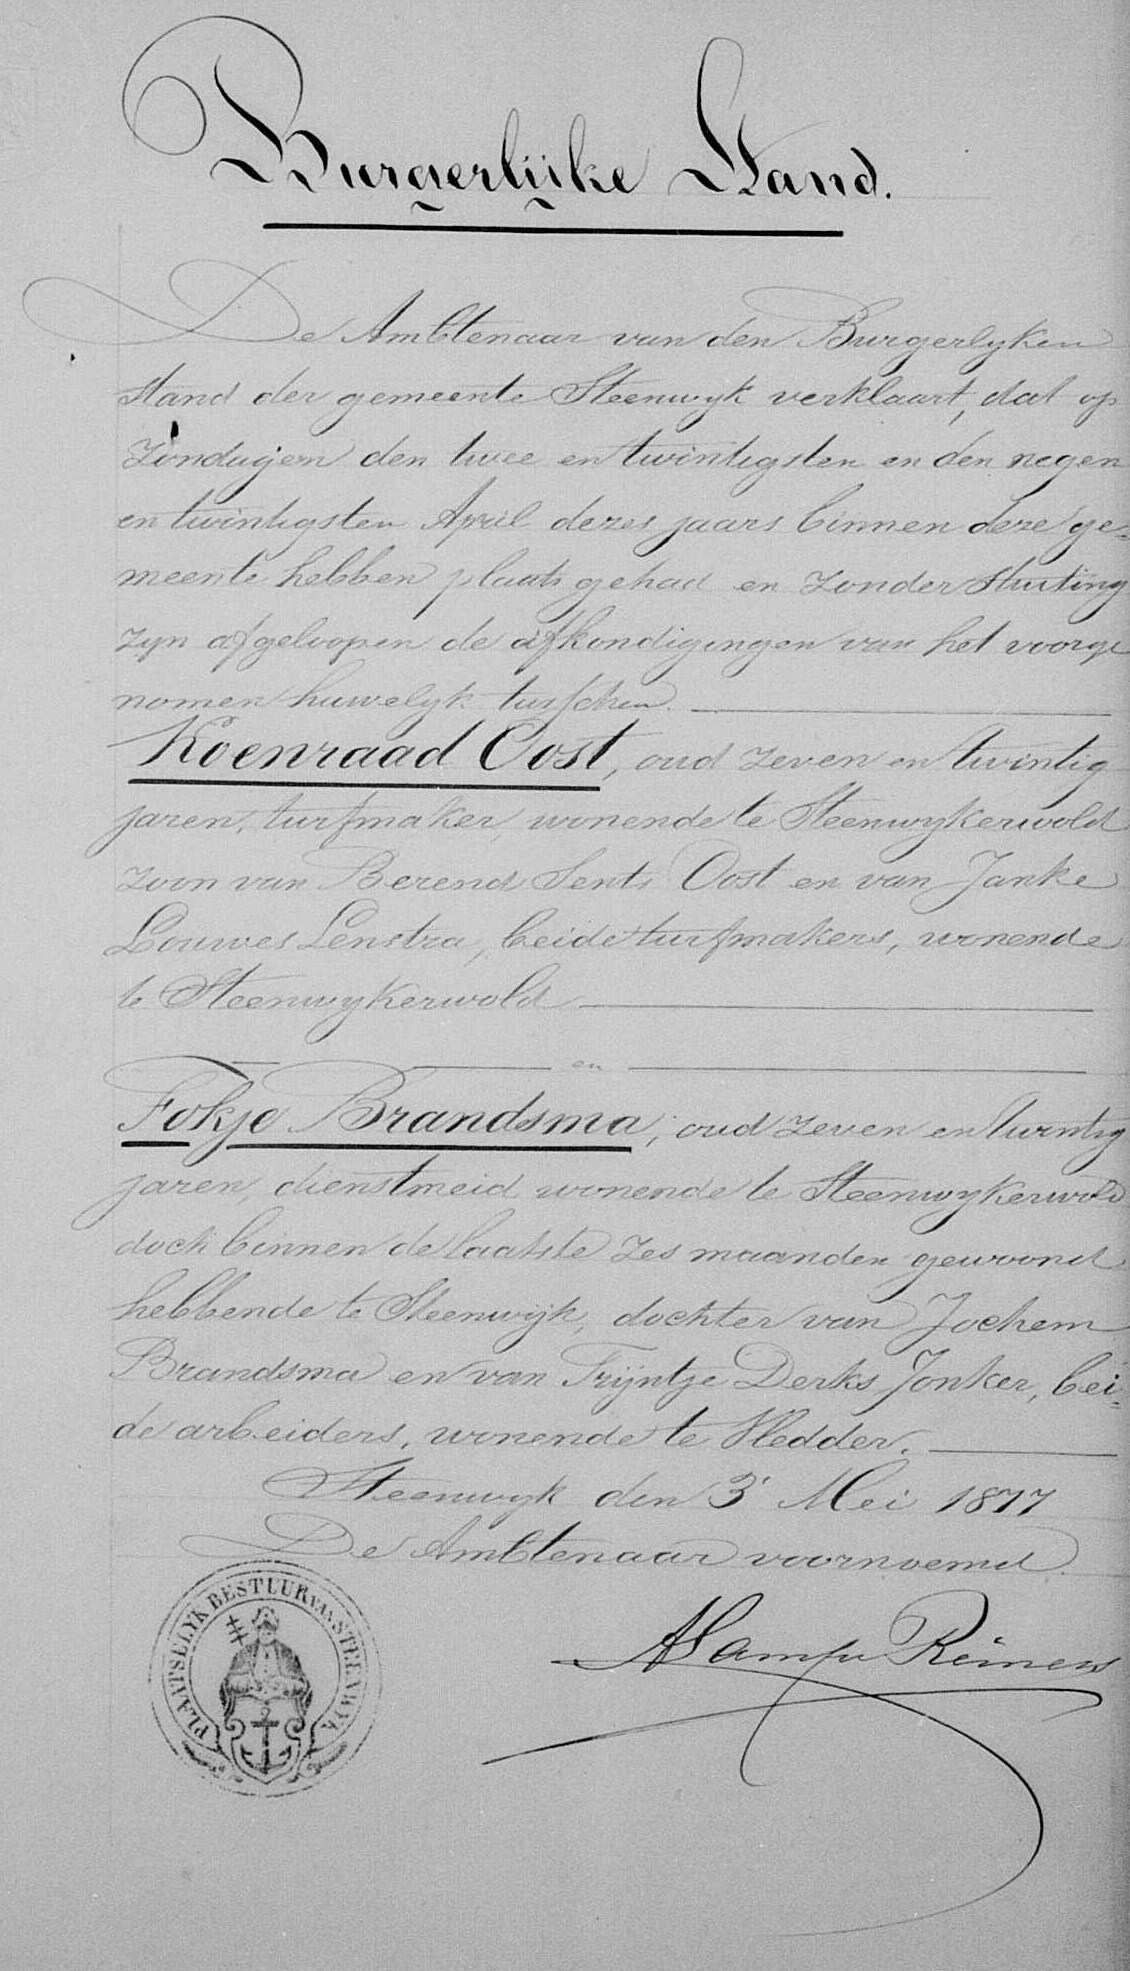 Burgerlijke Stand.
De Ambtenaar van den Burgerlyken
stand der gemeente Steenwyk verklaart, dat op
Zondagen den twee en twintigsten en den negen
en twintigsten April dezes jaars binnen deze ge-
meente hebben plaats gehad en zonder stuiting
zyn afgeloopen de afkondigingen van het voorge
nomen huwelyk tusschen
Koenraad Oost, oud zeven en twintig
jaren, turfmaker, wonende te Steenwykerwold
zoon van Berend Sents Oost en van Janke
Louwes Lenstra, beide turfmakers, wonende
te Steenwykerwold
en
Fokje Brandsma, oud zeven en twintig
jaren, dienstmeid wonende te Steenwykerwold
doch binnen de laatste zes maanden gewoond
hebbende te Steenwijk, dochter van Jochem
Brandsma en van Trijntje Derks Jonker, bei-
de arbeiders, wonende te Vledder.
Steenwyk den 3 Mei 1877
De Ambtenaar voornoemd.
PLAATSELYK BESTUUR VAN STEENWYK